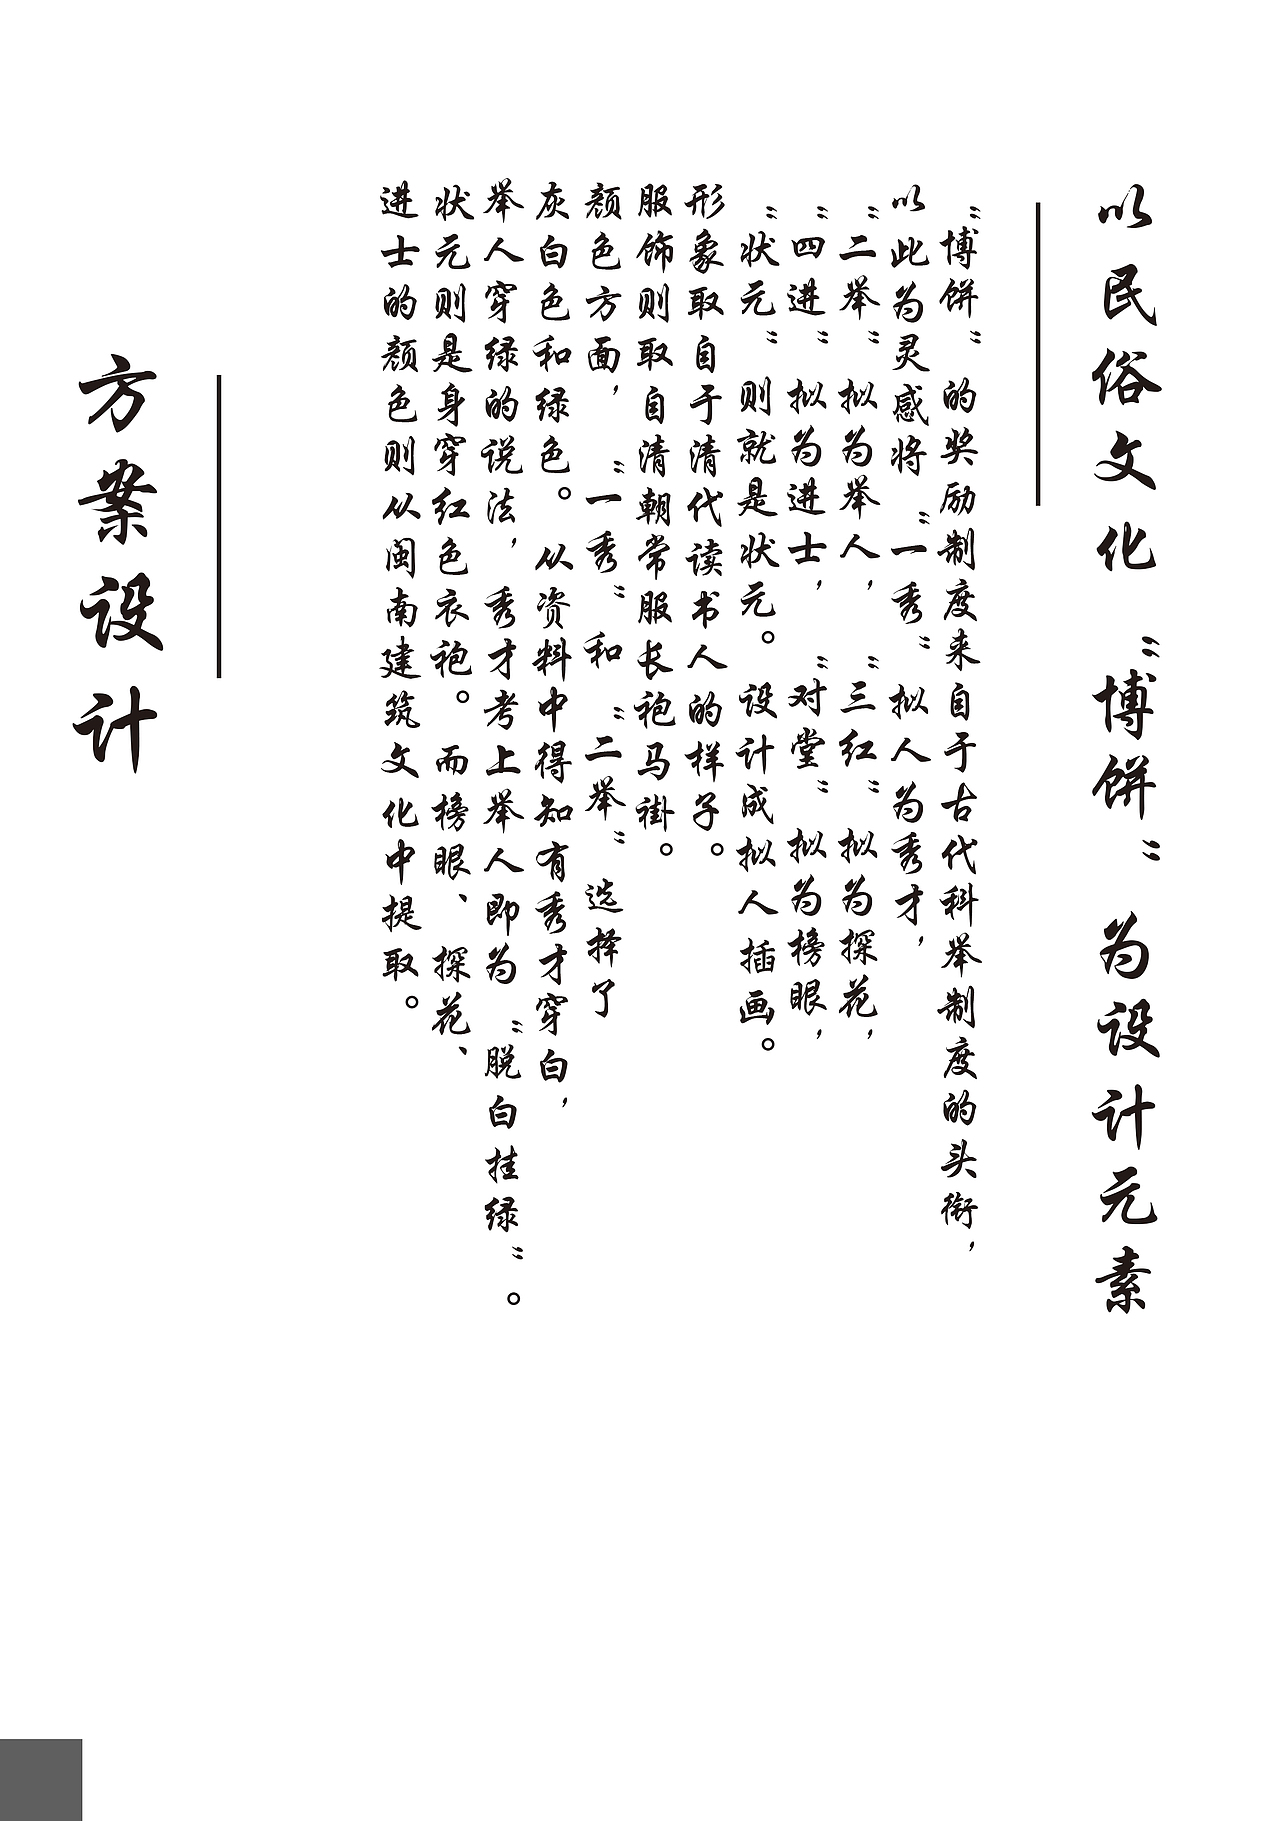 以民俗文化“博饼”为设计元素
“博饼”的奖励制度来自于古代科举制度的头衔，
以此为灵感将“一秀”拟人为秀才，
“二举”拟为举人，“三红”拟为探花，
“四进”拟为进士，“对堂”拟为榜眼，
“状元”则就是状元。设计成拟人插画。
形象取自于清代读书人的样子。
服饰则取自清朝常服长袍马褂。
颜色方面，“一秀”和“二举”选择了
灰白色和绿色。从资料中得知有秀才穿白，
举人穿绿的说法，秀才考上举人即为“脱白挂绿”。
状元则是身穿红色衣袍。而榜眼、探花、
进士的颜色则从闽南建筑文化中提取。
方案设计